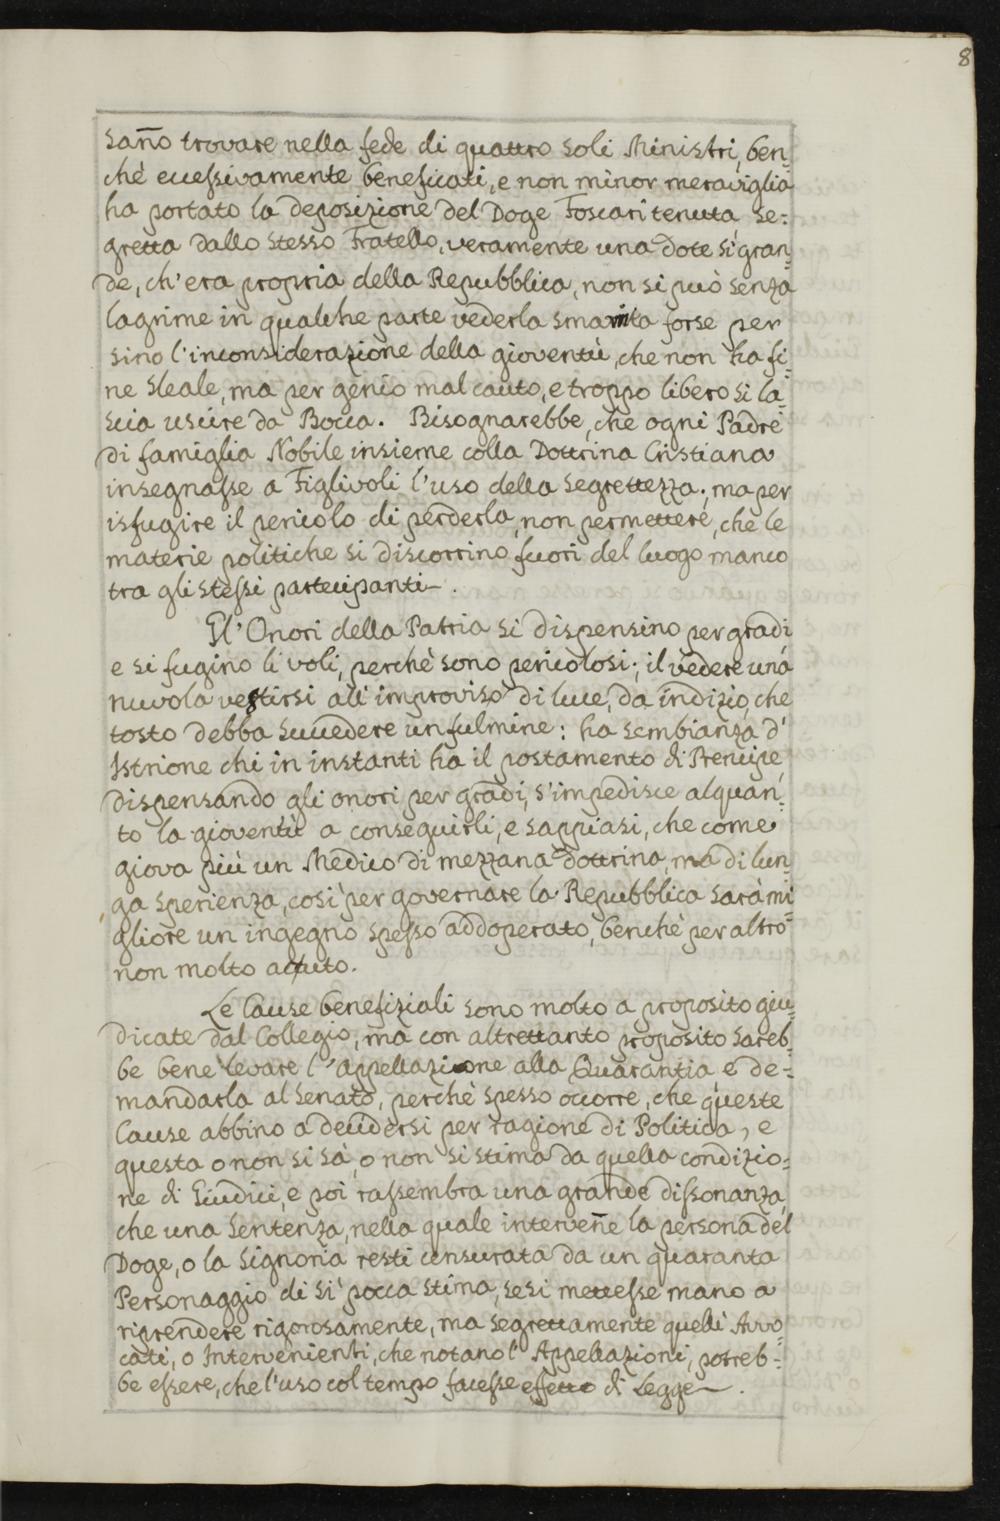 8
sano trovare nella fede di quattro soli Ministri, ben=
chè eccessivamente beneficati, e non minor meraviglia
ha portato la deposizione del Doge Foscari tenuta se=
gretta dallo stesso Fratello, veramente una dote sì gran=
de, ch'era propria della Repubblica, non si può senza
lagrime in qualche parte vederla smarrita forse per
sino l'inconsiderazione della gioventù, che non ha fi=
ne sleale, ma per genio mal cauto, e troppo libero si la=
scia uscire da Bocca. Bisognarebbe, che ogni Padre
di famiglia Nobile insieme colla Dottrina Cristiana
insegnasse a Figlivoli l'uso della segrettezza; ma per
isfugire il pericolo di perderla, non permettere, che le
materie politiche si discorrino fuori del luogo manco
tra gli stessi partecipanti.
Gl'Onori della Patria si dispensino per gradi
e si fugino li voli, perchè sono pericolosi; il vedere una
nuvola vestirsi all'improviso di luce, da indizio, che
tosto debba succedere un fulmine: ha sembianza d'
Istrione chi in instanti ha il postamento di Prencipe,
dispensando gli onori per gradi, s'impedisce alquan=
to la gioventù a conseguirli, e sappiasi, che come
giova più un Medico di mezzana dottrina, ma di lun=
ga sperienza, così per governare la Repubblica sarà mi=
gliore un ingegno spesso addoperato, benchè per altro
non molto acuto.
Le Cause benefiziali sono molto a proposito giu=
dicate dal Collegio, ma con altrettanto proposito sareb=
be bene levare l'Appellazione alla Quarantia e de=
mandarla al Senato, perchè spesso occorre, che queste
Cause abbino a decidersi per ragione di Politica, e
questa o non si sà, o non si stima da quella condizio=
ne di Giudici, e poi rassembra una grande dissonanza,
che una Sentenza, nella quale intervene la persona del
Doge, o la Signoria resti censurata da un quaranta
Personaggio di sì pocca stima, se si mettesse mano a
riprendere rigorosamente, ma segrettamente quelli Avvo=
cati, o Intervenienti, che notano l'Appellazioni, potreb=
be essere, che l'uso col tempo facesse effetto di Legge.